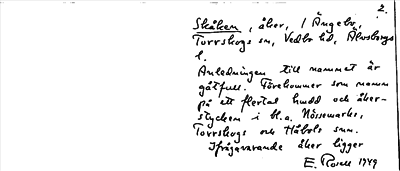 2.
Skåken, åker, i Ängebo,
Torrskogs sn, Vedbo hd, Älvsborgs
l.
Anledningen till namnet är
gåtfull. Förekommer som namn
på ett flertal hudd och åker-
stycken i bl.a. Nössemarks,
Torrskogs och Håbols snr.
Ifrågavarande åker ligger
E. Rosell 1949